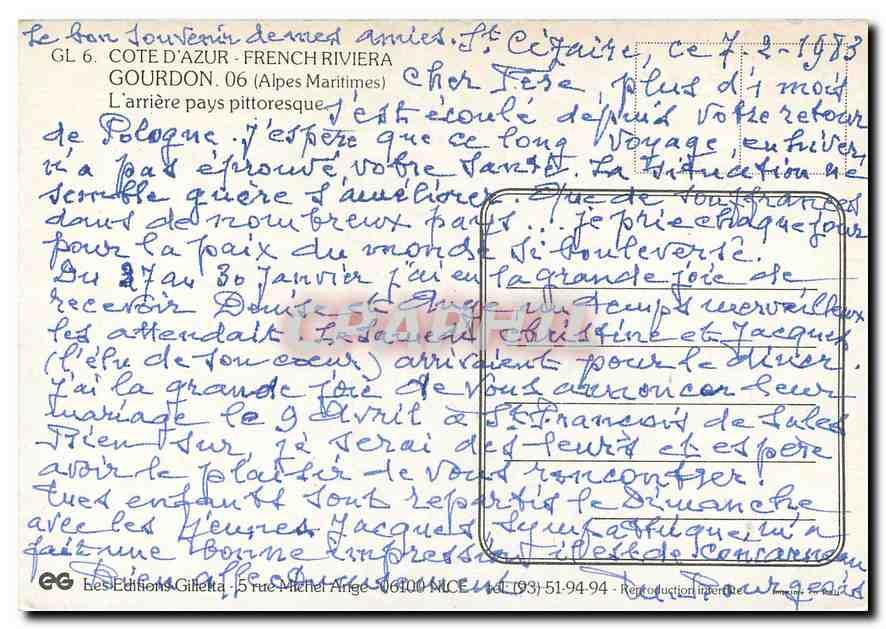 Le bon souvenir de mes amies. St. Cézaire, ce 7-2-1983
GL 6. COTE D'AZUR - FRENCH RIVIERA
GOURDON. 06 (Alpes Maritimes)
L'arrière pays pittoresque
Cher Père, plus d'1 mois
s'est écoulé depuis votre retour
de Pologne. J'espère que ce long voyage, en hiver,
n'a pas éprouvé votre santé. La situation ne
semble guère s'améliorer. Que de souffrances
dans de nombreux pays... je prie chaque jour
pour la paix du monde si bouleversé.
Du 27 au 30 Janvier j'ai eu la grande joie de
recevoir Denise et Ange un temps merveilleux
les attendait. Le samedi Christine et Jacques
(l'élu de son coeur) arrivaient pour le dîner.
J'ai la grande joie de vous annoncer leur
mariage le 9 Avril à St François de Sales
Bien sur, je serai des leurs et espère
avoir le plaisir de vous rencontrer.
Mes enfants sont repartis le Dimanche
avec les jeunes, Jacques sympathique, m'a
fait une bonne impression il est de Concarneau
Bien affectueusement
EG Les Editions Gilletta - 5 rue Michel Ange - 06100 NICE - tél. (93) 51-94-94 - Reproduction interdite